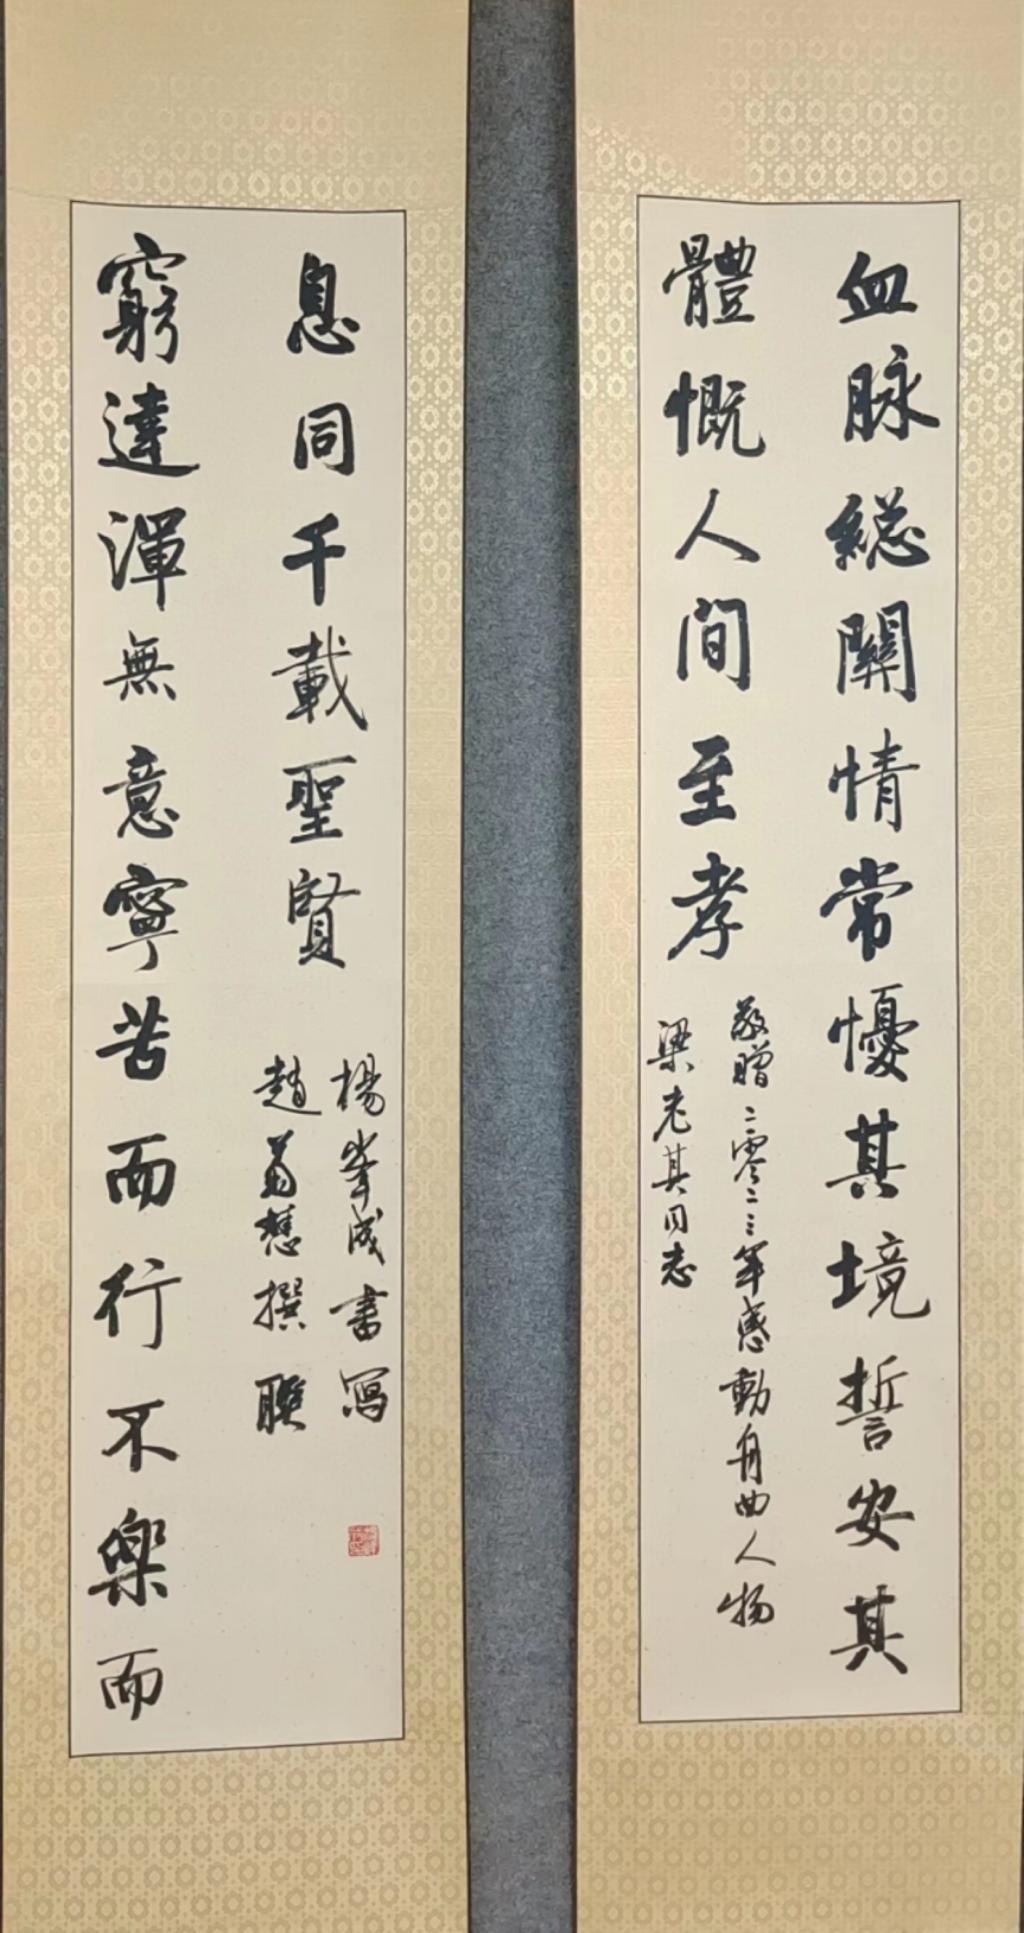 血脉総關情常懮其境誓安其
體慨人間至孝
敬贈二零二三年感動舟曲人物
梁老其同志
窮達渾無意寧苦而行不樂而
息同千載聖賢
楊峯成書寫
趙慧撰聯